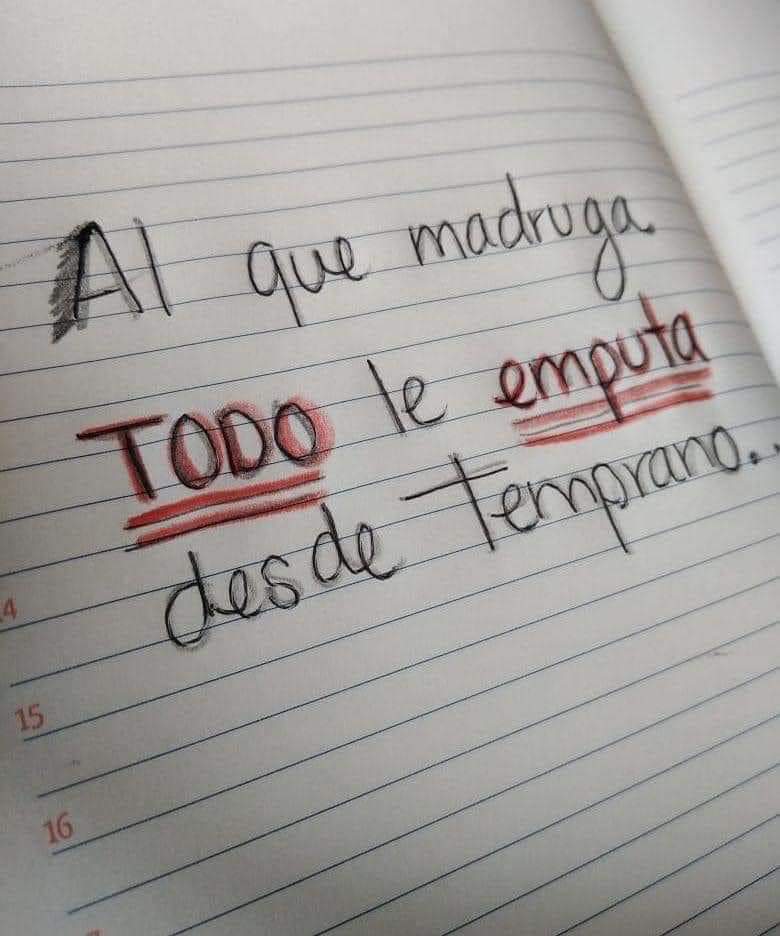 Al que madruga
TODO le emputa
desde temprano...
4
15
16